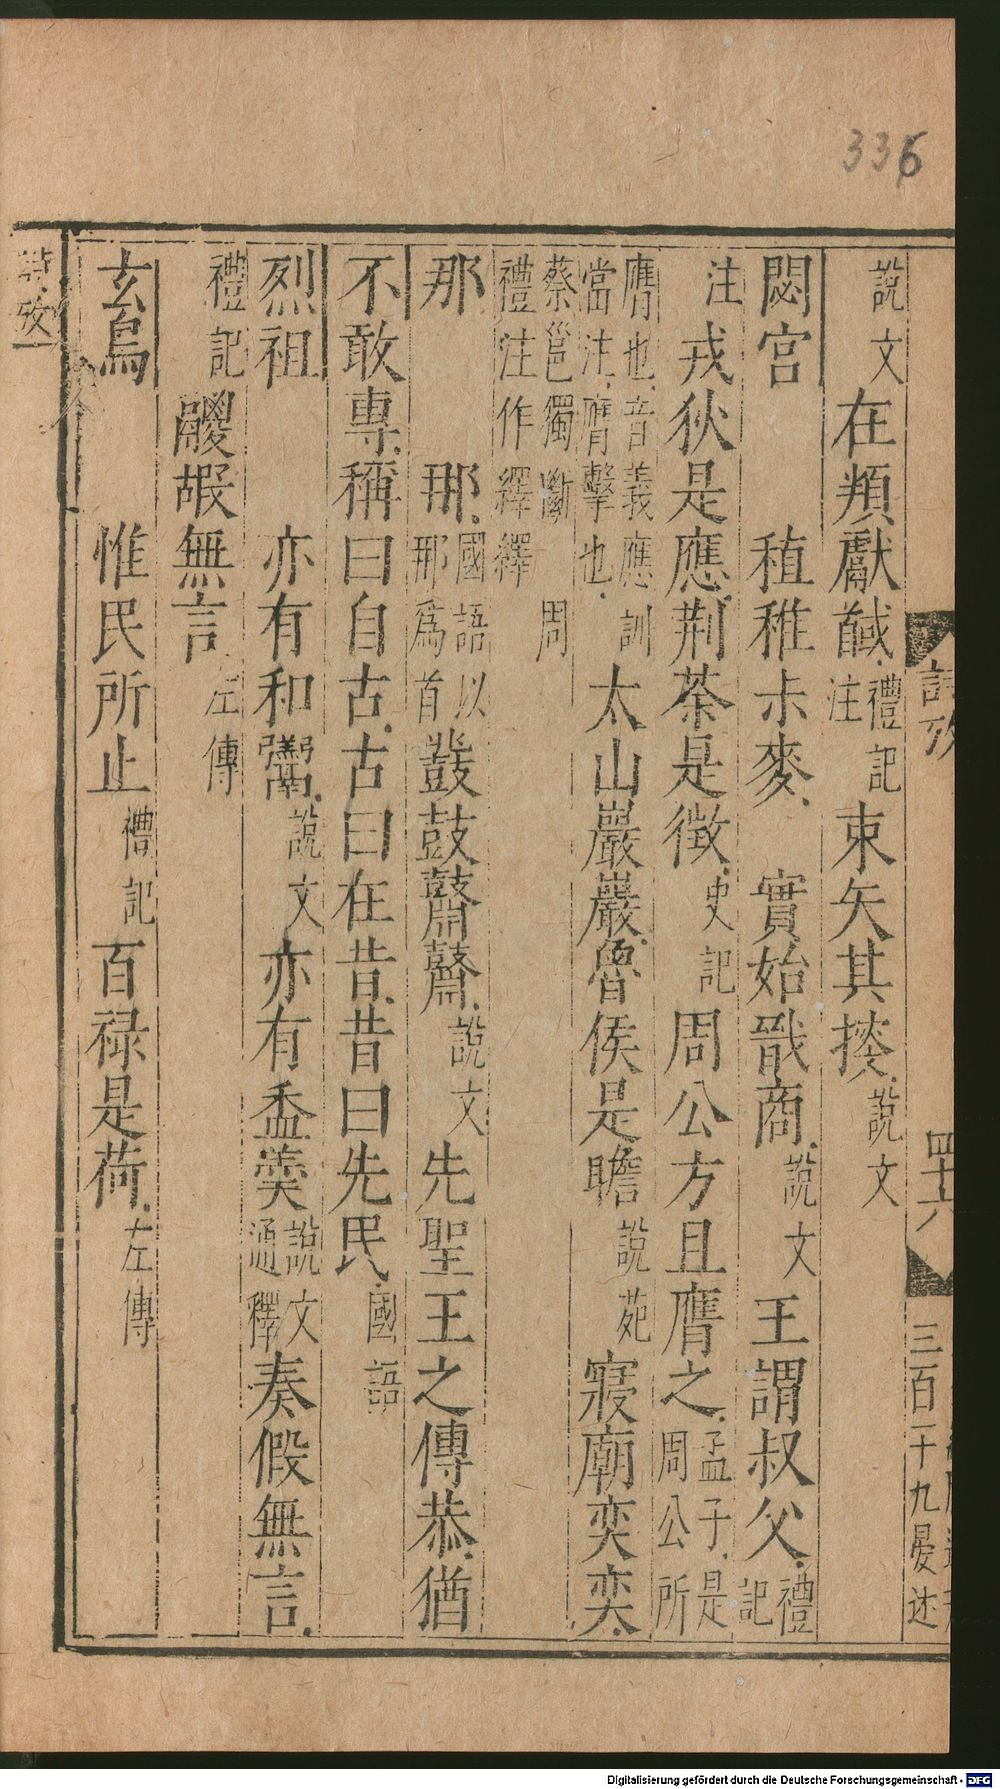 336
詩攷
四十六
三百二十九晏述
說文 在頖獻馘 禮記注 束矢其搜 說文
閟宮 稙稚尗麥 實始戩商 說文 王謂叔父 禮記
注 戎狄是應荆荼是徵 史記 周公方且膺之 孟子是周公所
膺也音義應訓當注膺擊也 太山巖巖魯侯是瞻 說苑 寢廟奕奕
蔡邕獨斷周禮注作繹繹
那 那 國語以那爲首 鼗鼓鼘鼘 說文 先聖王之傳恭猶
不敢專稱曰自古古曰在昔昔曰先民 國語
烈祖 亦有和鬻 說文 亦有盉羹 說文通釋 奏假無言
禮記 鬷嘏無言 左傳
玄鳥 惟民所止 禮記 百禄是荷 左傳
詩攷一
Digitalisierung gefördert durch die Deutsche Forschungsgemeinschaft - DFG